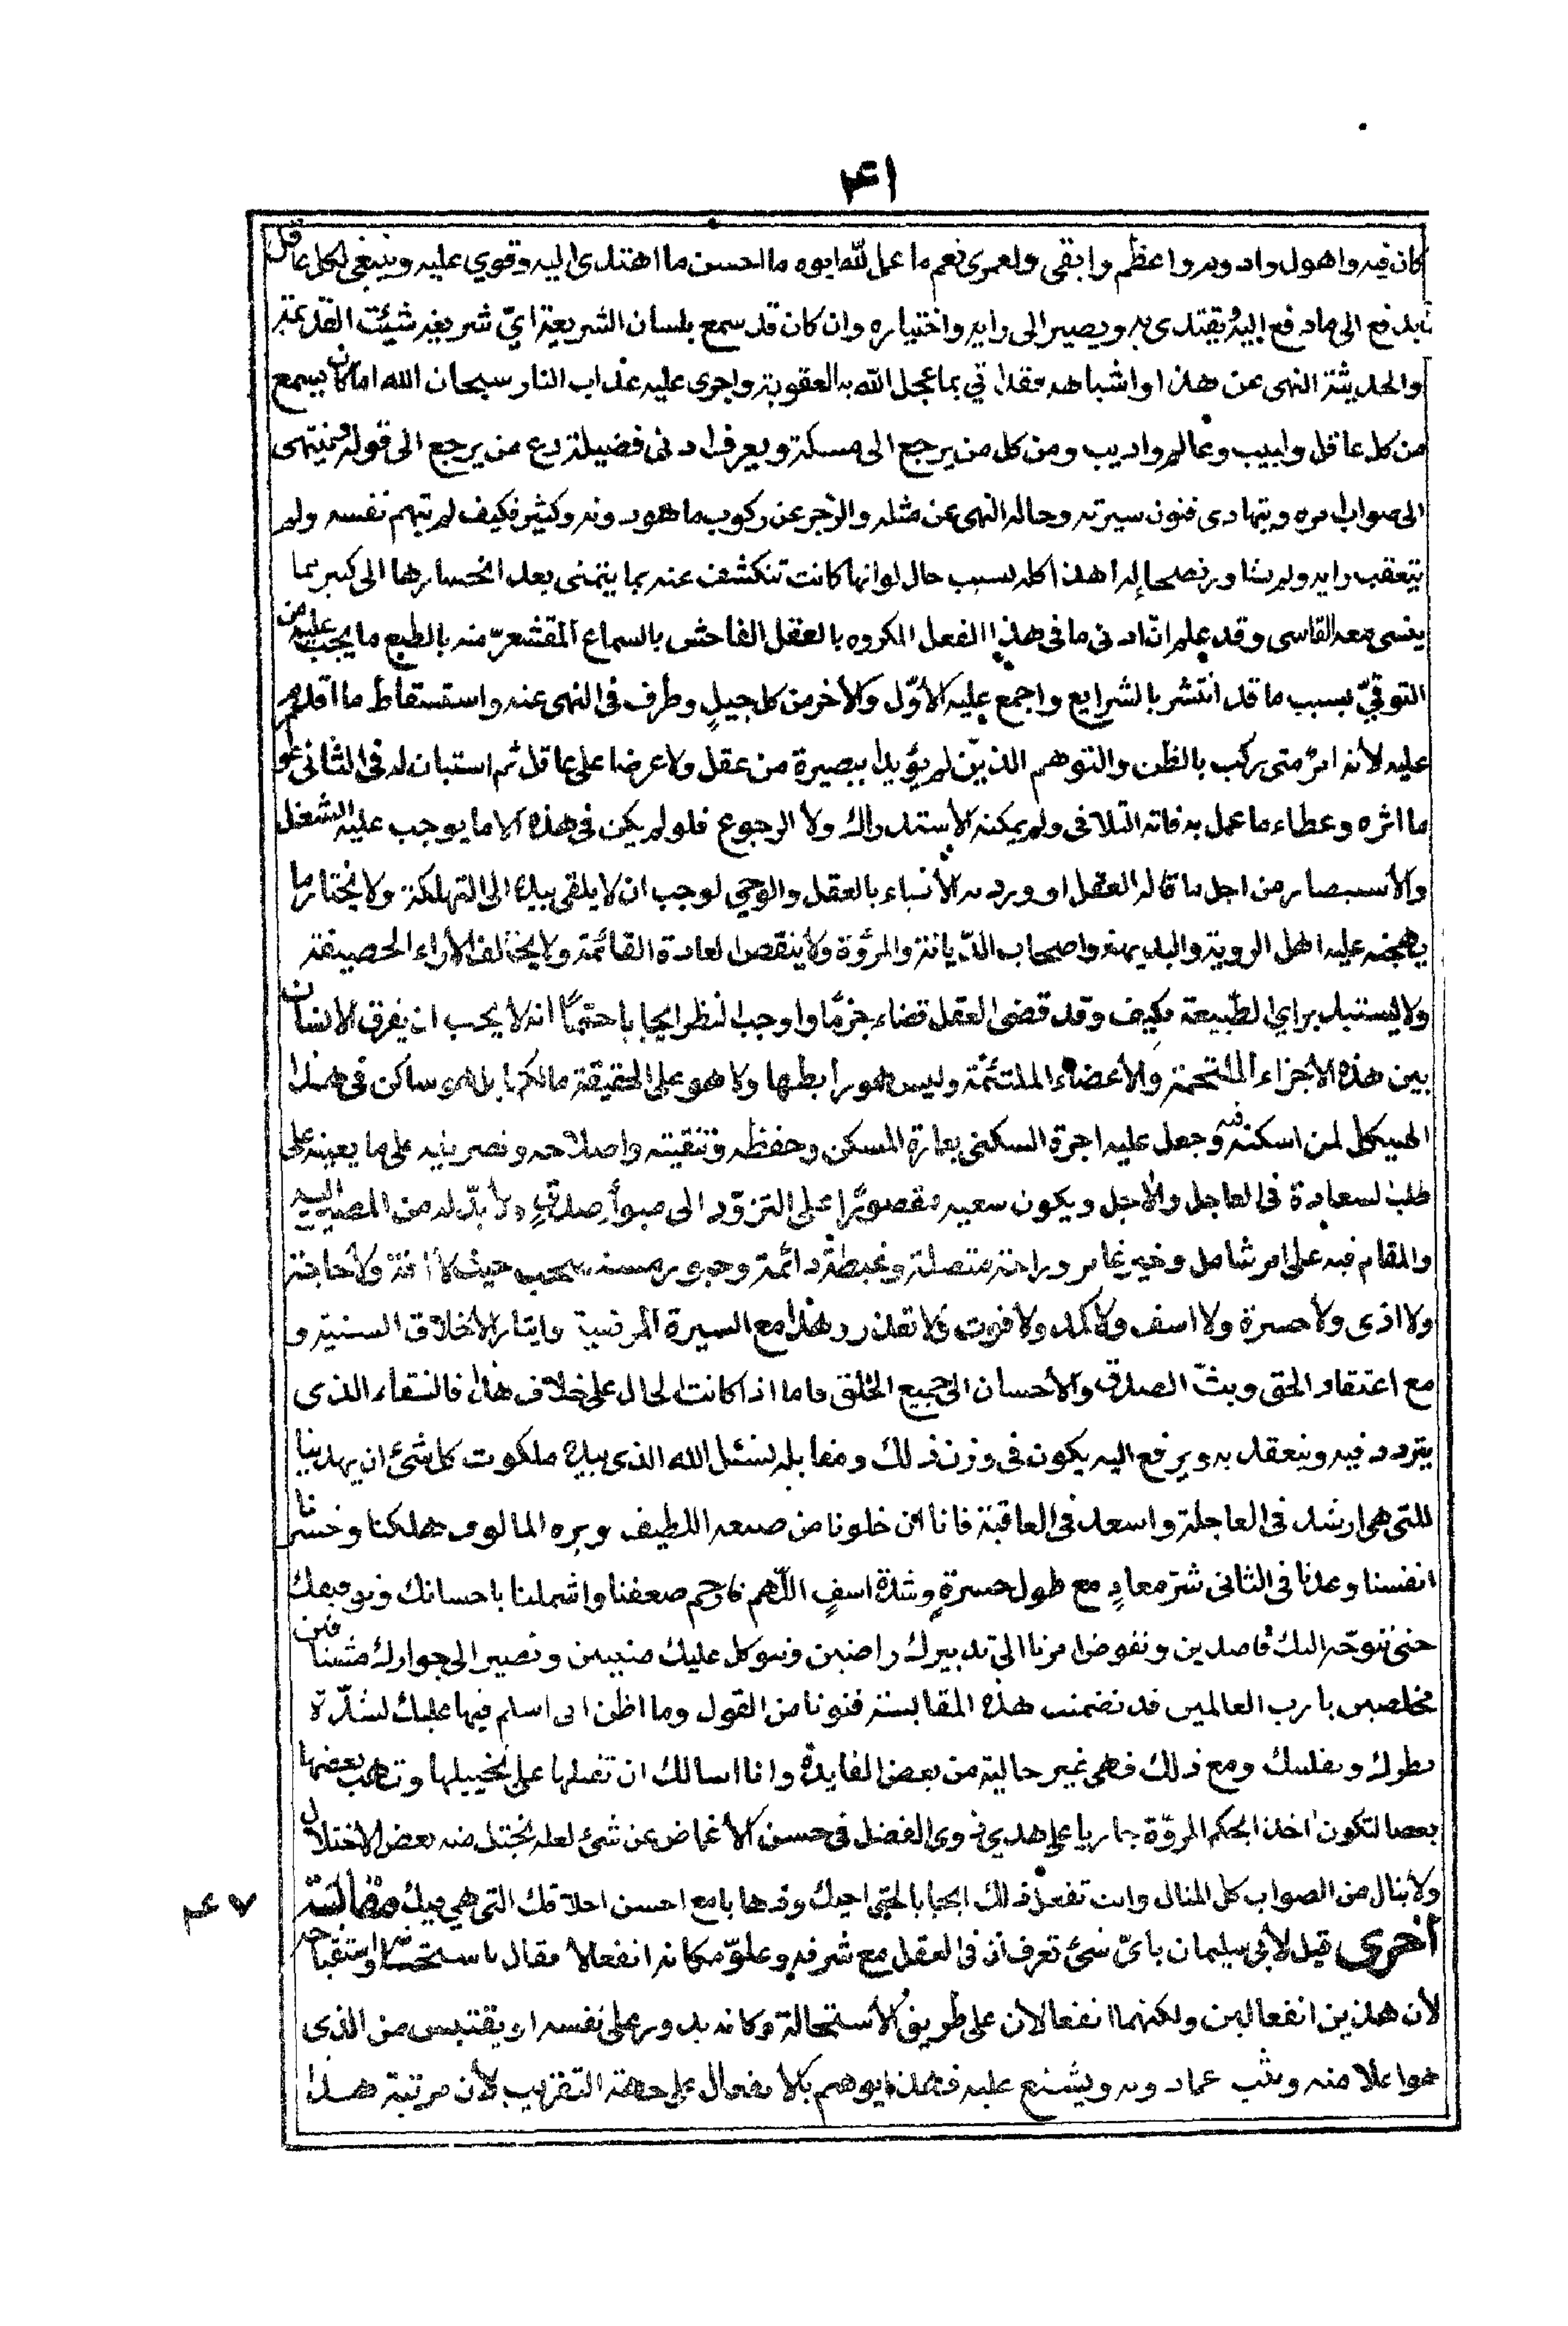 ٤١
كان فيه واهول وادوم واعظم وابقى ولعمرى نعم ما عمل لله ابوه ما احسن ما اهتدى اليه وقوي عليه وينبغي لكل عاقل
يدفع الى ما دفع اليه يقتدى به ويصير الى رايه واختياره وان كان قد سمع بلسان الشريعة ايّ شريعة شئت القديمة
والحديثة النهى عن هذا واشباهه فقد اتي بما عجل الله به العقوبة واجرى عليه عذاب النار سبحان الله اما كان يسمع
من كل عاقل ولبيب وعالم واديب ومن كل من يرجع الى مسكة ويعرف ادنى فضيلة دع من يرجع الى قوله فينتهى
الى صواب امره ويتهادى فنون سيرته وحاله النهى عن مثله والزجر عن ركوب ما هو دونه وكثير فكيف لم يتهم نفسه ولم
يتعقب رايه ولم يشاور نصحا له اهذا كله بسبب حال لو انها كانت تنكشف عنه بما يتمنى بعد انحسارها الى كبير بما
ينسى معه القاسى وقد علم انّ ادنى ما فى هذا الفعل المكروه بالعقل الفاحش بالسماع المقشعرّ منه بالطبع ما يجب عليه من
التوقيّ بسبب ما قد انتشر بالشرايع واجمع عليه الأوّل والأخر من كل جيلٍ وطرف فى النهى عنه واستسقاط ما اقدم
عليه لأنه امرٌ متى ركب بالظن والتوهم الذيّن لم يؤيدا ببصيرة من عقل ولا عرضا على عاقل ثم استبان له فى الثانى
ما اثره وعطاء ما عمل به فاته التلافى ولم يمكنه الأستدراك ولا الرجوع فلو لم يكن فى هذه الا ما يوجب عليه الشغل
والأستبصار من اجل ما قاله العقل او ورد به الأنبياء بالعقل والوحي لوجب ان لا يلقى بيده الى التهلكة ولا يختار ما
يهجنه عليه اهل الروية والبديهة واصحاب الدّيانة والمرؤة ولا ينقض العادة القائمة ولا يخالف الأراء الحصيفة
ولا يستبد براي الطبيعة فكيف وقد قضى العقل قضاء جزمًا واوجب النظر ايجابا حتمًا انه لا يجب ان يفرق الانسان
بين هذه الأجزاء الملتحمة والأعضاء الملتئمة وليس هو رابطها ولا هو على الحقيقة مالكها بل هو ساكن فى هذا
الهيكل لمن اسكنه فيه وجعل عليه اجرة السكنى بعمارة المسكن وحفظه وتنقيته واصلاحه وتصريفه على ما يعينه على
طلب السعادة فى العاجل والأجل ويكون سعيه مقصورًا على التزوّد الى مبوأ صدقٍ ولا بدّ له من المصير اليه
والمقام فيه على امر شامل وخير غامر وراحة متصلة وغبطة دائمة حيث لا افة ولا حاجة
ولا اذى ولا حسرة ولا اسف ولا كمد ولا فوت ولا تعذر وهذا مع السيرة المرضية وايثار الأخلاق السنية و
مع اعتقاد الحق وبثّ الصدق والأحسان الى جميع الخلق فاما اذا كانت الحال على خلاف هذا فالشقاء الذى
يتردد فيه ويتعقل به ويرفع اليه يكون فى وزن ذلك ومقابله نسئل الله الذى بيده ملكوت كل شئ ان يهدينا
للتى هى ارشد فى العاجلة واسعد فى العاقبة فانا ان خلونا من صنعه اللطيف وبره المالوف هلكنا وخسرنا
انفسنا وعدنا فى الثانى شرّ معادٍ مع طول حسرةٍ وشدة اسفٍ اللّهم فارحم ضعفنا واشملنا باحسانك وتوفيقك
حتى نتوجّه اليك قاصدين ونفوض امرنا الى تدبيرك راضين ونتوكل عليك منيبين ونصير الى جوارك
مخلصين يا رب العالمين قد تضمنت هذه المقابسة فنونا من القول وما اظن انى اسلم فيها عليك لشدّة
ومع ذلك فهى غير خالية من بعض الفايدة وانا اسالك ان تقبلها على تخييلها وتهب بعضها
بعضا لتكون اخذا بحكم المروّة جاريا على هدي ذوى الفضل فى حسن الأغماض عن شئ لعله يختل منه بعض الاختلال
ولا ينال من الصواب كل المنال وانت تفعل ذلك ايجابا لحق اخيك مع احسن اخلاقك التى هي فيك مقابسة
٤٧
أخرى قيل لأبي سليمان باىّ شئ تعرف ان فى العقل مع شرفه وعلوّ مكانه انفعالا فقال باستحسانه واستقباحه
لأن هذين انفعالين ولكنهما انفعالان على طريق الأستحالة وكانه يدور على نفسه او يقتبس من الذى
هو اعلا منه عما دونه ويشنع عليه فهذا يوهم بالانفعال على جهة التقريب لأن مرتبة هذا